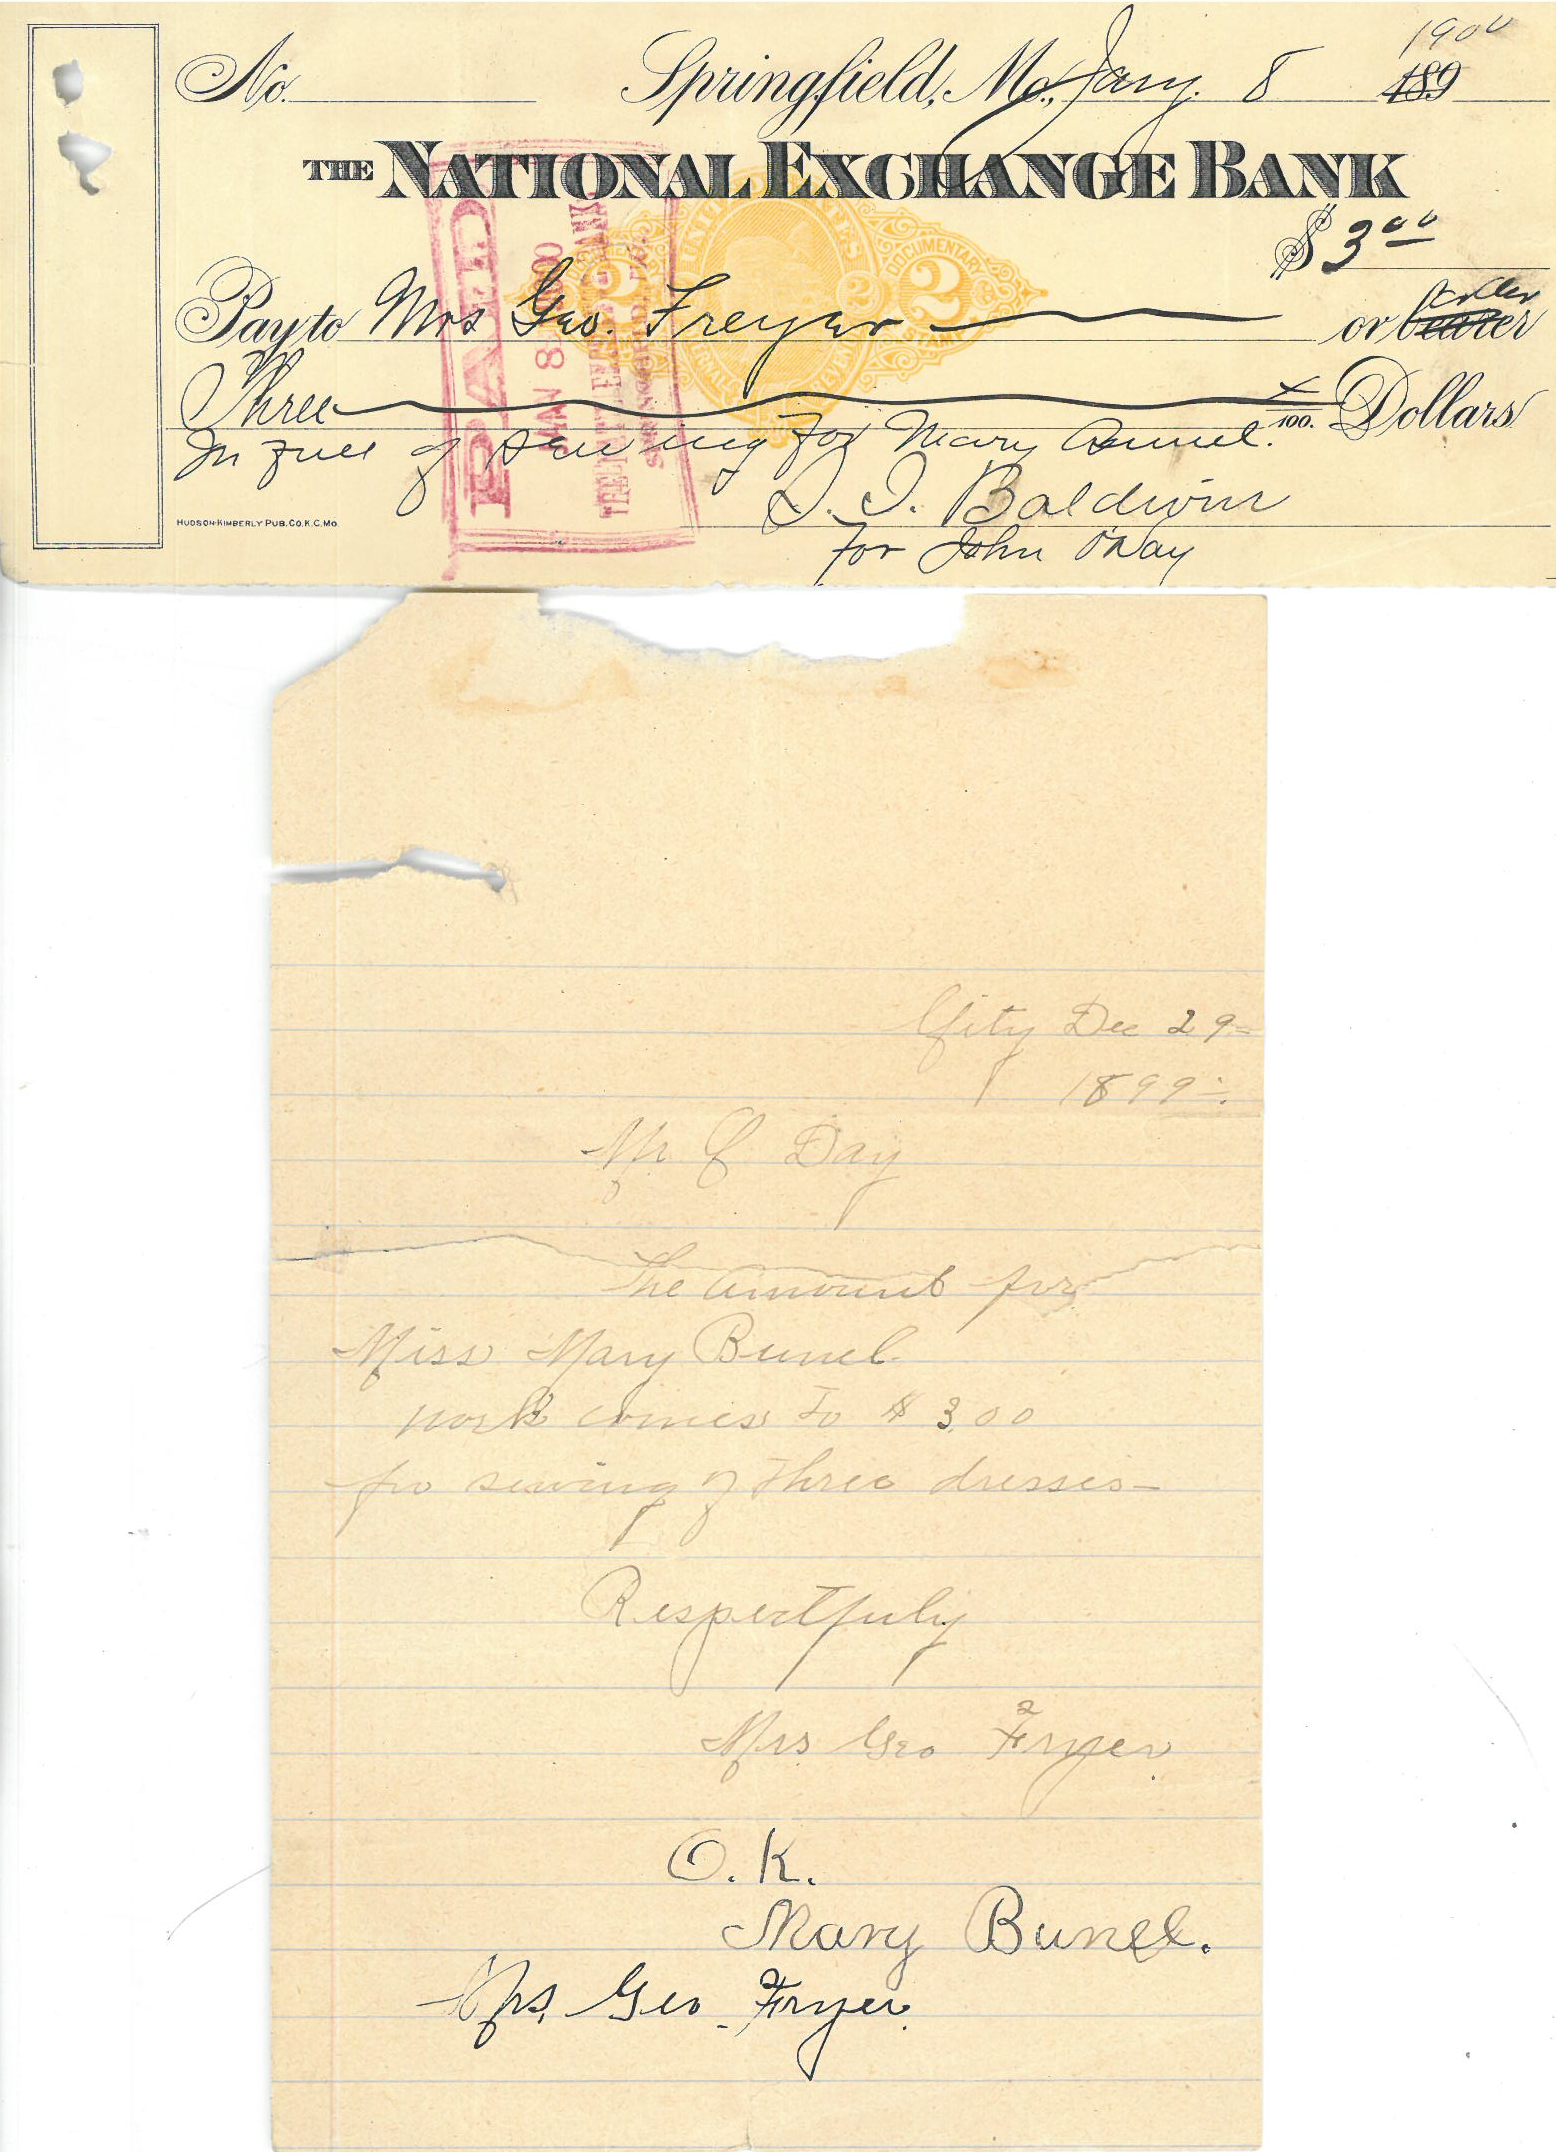 1900
No. Springfield, Mo., Jany. 8 189
THE NATIONAL EXCHANGE BANK
$ 3 00
order
Pay to Mrs Geo. Freyer or bearer
Three x/100. Dollars
In full of sewing for Mary Bunel.
D. D. Baldwin
HUDSON-KIMBERLY PUB. CO. K.C. MO.
for John O'Day
PAID
JAN 8 1900
THE NATL EXCHANGE BANK,
SPRINGFIELD, MO.
UNITED STATES
INTERNAL REVENUE
DOCUMENTARY
STAMP
2 2 2
City Dec 29=
1899-.
Mr O Day
The amount for
Miss Mary Bunel.
work comes to $ 3.00
for sewing of three dresses-
Respectfuly
Mrs Geo Fryer.
O. K.
Mary Bunel.
Mrs, Geo Fryer.